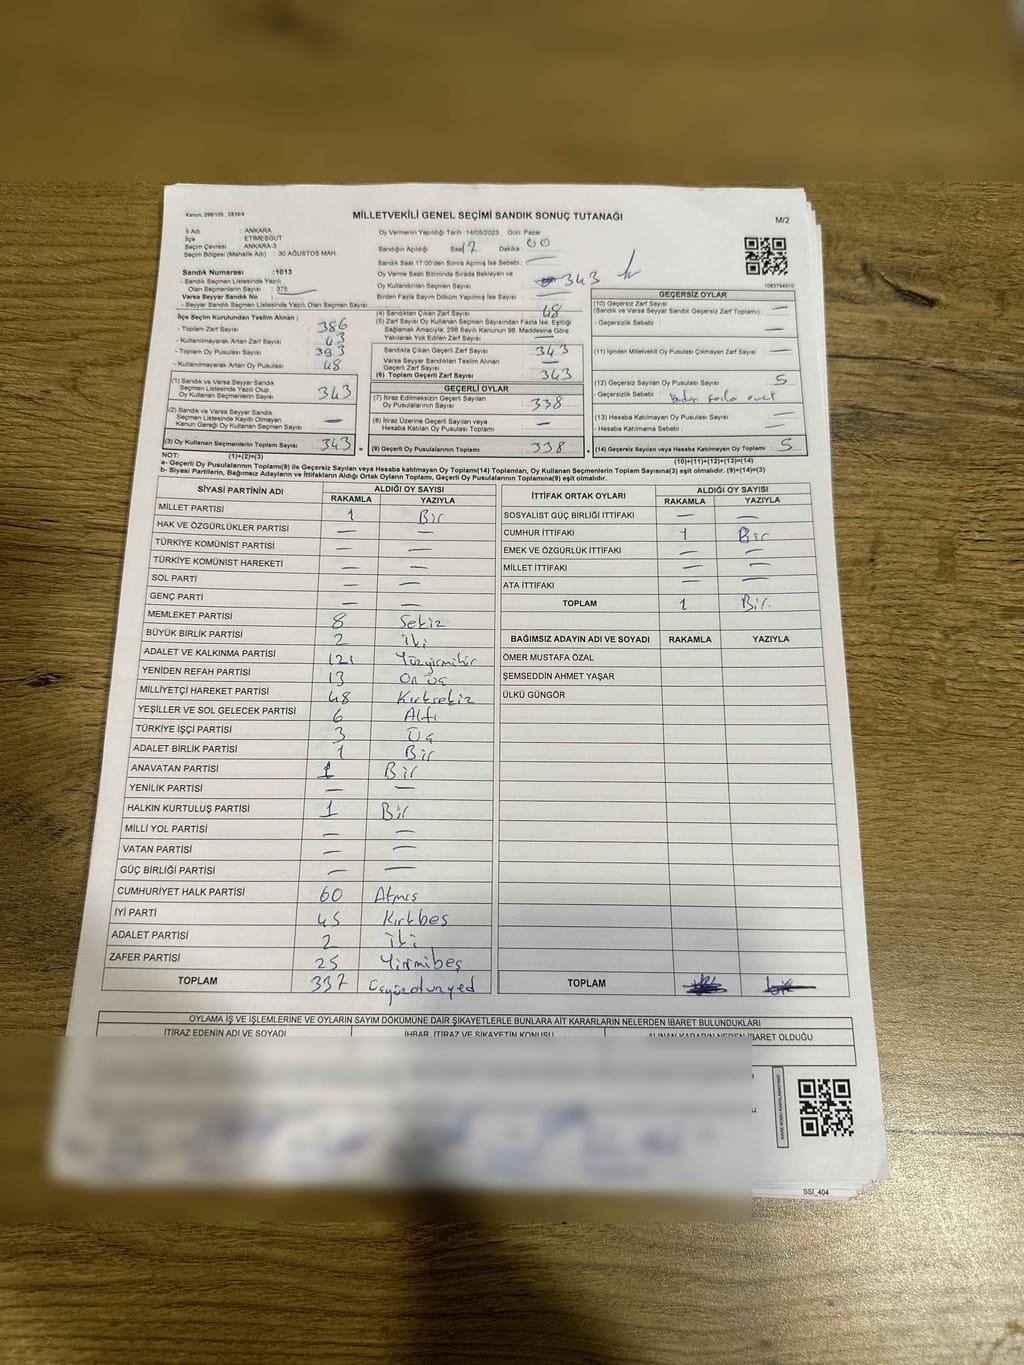 Kanun, 298/105 , 2839/4
MİLLETVEKİLİ GENEL SEÇİMİ SANDIK SONUÇ TUTANAĞI
M/2
İl Adı : ANKARA
İlçe : ETİMESGUT
Seçim Çevresi : ANKARA-3
Seçim Bölgesi (Mahalle Adı) : 30 AĞUSTOS MAH.
Sandık Numarası :1013
- Sandık Seçmen Listesinde Yazılı
Olan Seçmenlerin Sayısı : 375
Varsa Seyyar Sandık No :
- Seyyar Sandık Seçmen Listesinde Yazılı Olan Seçmen Sayısı :
Oy Vermenin Yapıldığı Tarih :14/05/2023 Gün: Pazar
Sandığın Açıldığı Saat 17 Dakika 00
Sandık Saat 17:00'den Sonra Açılmış İse Sebebi : —
Oy Verme Saati Bitiminde Sırada Bekleyen ve
Oy Kullandırılan Seçmen Sayısı : 343
Birden Fazla Sayım Döküm Yapılmış İse Sayısı : —
1083794010
İlçe Seçim Kurulundan Teslim Alınan ;
- Toplam Zarf Sayısı 386
- Kullanılmayarak Artan Zarf Sayısı 43
- Toplam Oy Pusulası Sayısı 393
- Kullanılmayarak Artan Oy Pusulası 48
(1) Sandık ve Varsa Seyyar Sandık
Seçmen Listesinde Yazılı Olup
Oy Kullanan Seçmen Sayısı 343
(2) Sandık ve Varsa Seyyar Sandık
Seçmen Listesinde Kayıtlı Olmayan
Kanun Gereği Oy Kullanan Seçmen Sayısı —
(3) Oy Kullanan Seçmenlerin Toplam Sayısı 343
(4) Sandıktan Çıkan Zarf Sayısı 48
(5) Zarf Sayısı Oy Kullanan Seçmen Sayısından Fazla İse, Eşitliği
Sağlamak Amacıyla; 298 Sayılı Kanunun 98. Maddesine Göre
Yakılarak Yok Edilen Zarf Sayısı —
Sandıkta Çıkan Geçerli Zarf Sayısı 343
Varsa Seyyar Sandıktan Teslim Alınan
Geçerli Zarf Sayısı —
(6) Toplam Geçerli Zarf Sayısı 343
GEÇERLİ OYLAR
(7) İtiraz Edilmeksizin Geçerli Sayılan
Oy Pusulalarının Sayısı 338
(8) İtiraz Üzerine Geçerli Sayılan veya
Hesaba Katılan Oy Pusulası Toplamı —
(9) Geçerli Oy Pusulalarının Toplamı 338
GEÇERSİZ OYLAR
(10) Geçersiz Zarf Sayısı
(Sandık ve Varsa Seyyar Sandık Geçersiz Zarf Toplamı) : —
- Geçersizlik Sebebi : —
(11) İçinden Milletvekili Oy Pusulası Çıkmayan Zarf Sayısı —
(12) Geçersiz Sayılan Oy Pusulası Sayısı 5
- Geçersizlik Sebebi : Birden fazla evet
(13) Hesaba Katılmayan Oy Pusulası Sayısı : —
- Hesaba Katılmama Sebebi : —
(14) Geçersiz Sayılan veya Hesaba Katılmayan Oy Toplamı 5
NOT: (1)+(2)=(3) (10)+(11)+(12)+(13)=(14)
a- Geçerli Oy Pusulalarının Toplamı(9) ile Geçersiz Sayılan veya Hesaba katılmayan Oy Toplamı(14) Toplamları, Oy Kullanan Seçmenlerin Toplam Sayısına(3) eşit olmalıdır. (9)+(14)=(3)
b- Siyasi Partilerin, Bağımsız Adayların ve İttifakların Aldığı Ortak Oyların Toplamı, Geçerli Oy Pusulalarının Toplamına(9) eşit olmalıdır.
SİYASİ PARTİNİN ADI ALDIĞI OY SAYISI
RAKAMLA YAZIYLA
MİLLET PARTİSİ 1 Bir
HAK VE ÖZGÜRLÜKLER PARTİSİ — —
TÜRKİYE KOMÜNİST PARTİSİ — —
TÜRKİYE KOMÜNİST HAREKETİ — —
SOL PARTİ — —
GENÇ PARTİ — —
MEMLEKET PARTİSİ 8 Sekiz
BÜYÜK BİRLİK PARTİSİ 2 İki
ADALET VE KALKINMA PARTİSİ 121 Yüzyirmibir
YENİDEN REFAH PARTİSİ 13 On üç
MİLLİYETÇİ HAREKET PARTİSİ 48 Kırksekiz
YEŞİLLER VE SOL GELECEK PARTİSİ 6 Altı
TÜRKİYE İŞÇİ PARTİSİ 3 Üç
ADALET BİRLİK PARTİSİ 1 Bir
ANAVATAN PARTİSİ 1 Bir
YENİLİK PARTİSİ — —
HALKIN KURTULUŞ PARTİSİ 1 Bir
MİLLİ YOL PARTİSİ — —
VATAN PARTİSİ — —
GÜÇ BİRLİĞİ PARTİSİ — —
CUMHURİYET HALK PARTİSİ 60 Atmış
İYİ PARTİ 45 Kırkbeş
ADALET PARTİSİ 2 İki
ZAFER PARTİSİ 25 Yirmibeş
TOPLAM 337
İTTİFAK ORTAK OYLARI ALDIĞI OY SAYISI
RAKAMLA YAZIYLA
SOSYALİST GÜÇ BİRLİĞİ İTTİFAKI — —
CUMHUR İTTİFAKI 1 Bir
EMEK VE ÖZGÜRLÜK İTTİFAKI — —
MİLLET İTTİFAKI — —
ATA İTTİFAKI — —
TOPLAM 1 Bir
BAĞIMSIZ ADAYIN ADI VE SOYADI RAKAMLA YAZIYLA
ÖMER MUSTAFA ÖZAL
ŞEMSEDDİN AHMET YAŞAR
ÜLKÜ GÜNGÖR
TOPLAM
OYLAMA İŞ VE İŞLEMLERİNE VE OYLARIN SAYIM DÖKÜMÜNE DAİR ŞİKAYETLERLE BUNLARA AİT KARARLARIN NELERDEN İBARET BULUNDUKLARI
İTİRAZ EDENİN ADI VE SOYADI İHBAR, İTİRAZ VE ŞİKAYETİN KONUSU ALINAN KARARIN NEDEN İBARET OLDUĞU
SSI_404